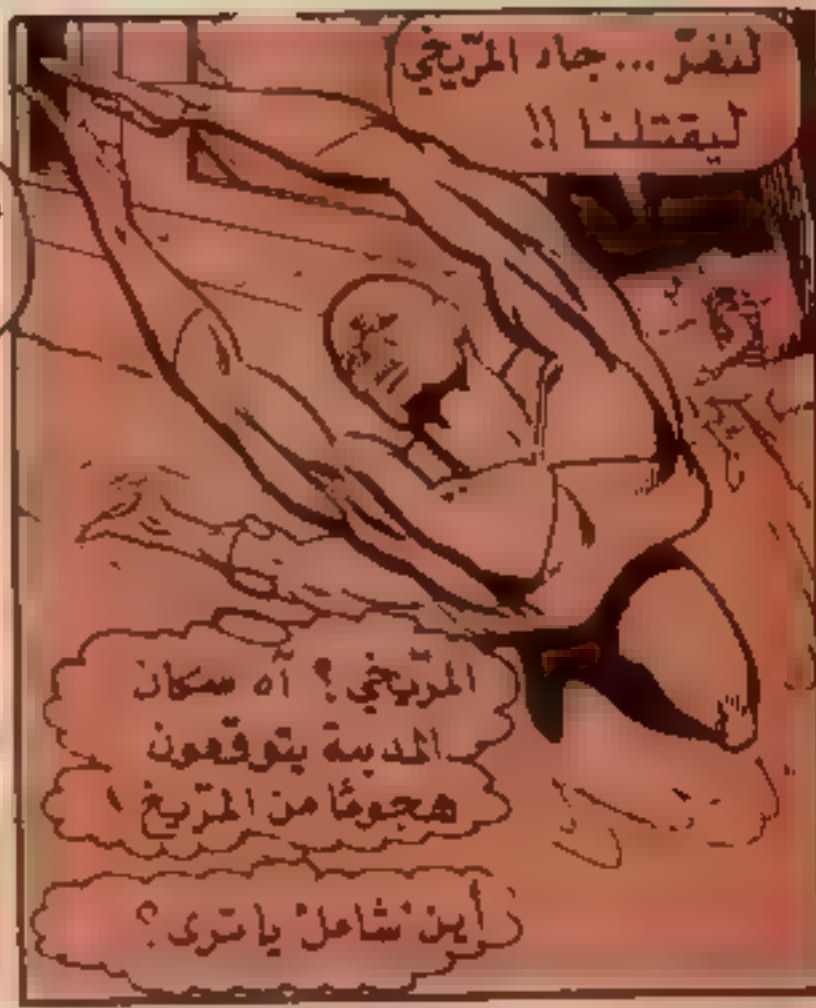 لنفرّ ... جاء المرّيخي
ليقتلنا !!
المرّيخي ؟ آه سكان
المدينة يتوقّعون
هجومًا من المرّيخ !
أين "شاعل" يا ترى ؟